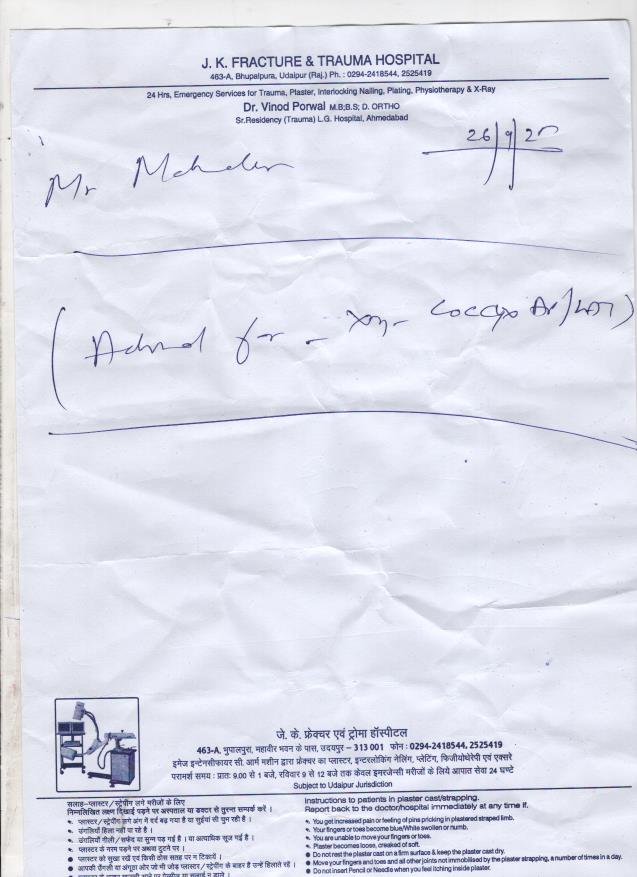 J. K. FRACTURE & TRAUMA HOSPITAL
463-A, Bhupalpura, Udaipur (Raj.) Ph. : 0294-2418544, 2525419
24 Hrs, Emergency Services for Trauma, Plaster, Interlocking Nailing, Plating, Physiotherapy & X-Ray
Dr. Vinod Porwal M.B;B.S; D. ORTHO
Sr.Residency (Trauma) L.G. Hospital, Ahmedabad
26/9/20
Mr
for - Coccyx AP/LAT)
जे. के. फ्रेक्चर एवं ट्रोमा हॉस्पीटल
463-A, भुपालपुरा, महावीर भवन के पास, उदयपुर – 313 001 फोन : 0294-2418544, 2525419
इमेज इन्टेनसीफायर सी. आर्म मशीन द्वारा फ्रेक्चर का प्लास्टर, इन्टरलोकिंग नेलिंग, प्लेटिंग, फिजीयोथेरेपी एवं एक्सरे
परामर्श समय : प्रातः 9.00 से 1 बजे, रविवार 9 से 12 बजे तक केवल इमरजेन्सी मरीजों के लिये आपात सेवा 24 घण्टे
Subject to Udaipur Jurisdiction
सलाह-प्लास्टर/स्ट्रेपींग लगे मरीजों के लिए
निम्नलिखित लक्षण दिखाई पड़ने पर अस्पताल या डाक्टर से तुरन्त सम्पर्क करें ।
प्लास्टर/स्ट्रेपींग लगे अंग में दर्द बढ़ गया है या सुईयां सी चुभ रही है ।
उंगलियाँ हिला नहीं पा रहे है ।
उंगलियाँ नीली/सफेद या सुन्न पड़ गई है । या अत्यधिक सूज गई है ।
प्लास्टर के नरम पड़ने पर अथवा टुटने पर ।
प्लास्टर को सुखा रखें एवं किसी ठोस सतह पर न टिकायें ।
आपकी उँगली या अंगूठा ओर जो भी जोड़ प्लास्टर/स्ट्रेपींग के बाहर है उन्हें हिलाते रहें ।
Instructions to patients in paster cast/strapping.
Report back to the doctor/hospital immediately at any time if.
You get increased pain or feeling of pins pricking in plastered straped limb.
Your fingers or toes become blue/While swollen or numb.
You are unable to move your fingers or toes.
Plaster becomes loose, creaked of soft.
Do not rest the plaster cast on a firm surface & keep the plaster cast dry.
Move your fingers and toes and all other joints not immobilised by the plaster strapping, a number of times in a day.
Do not insert Pencil or Needle when you feel itching inside plaster.